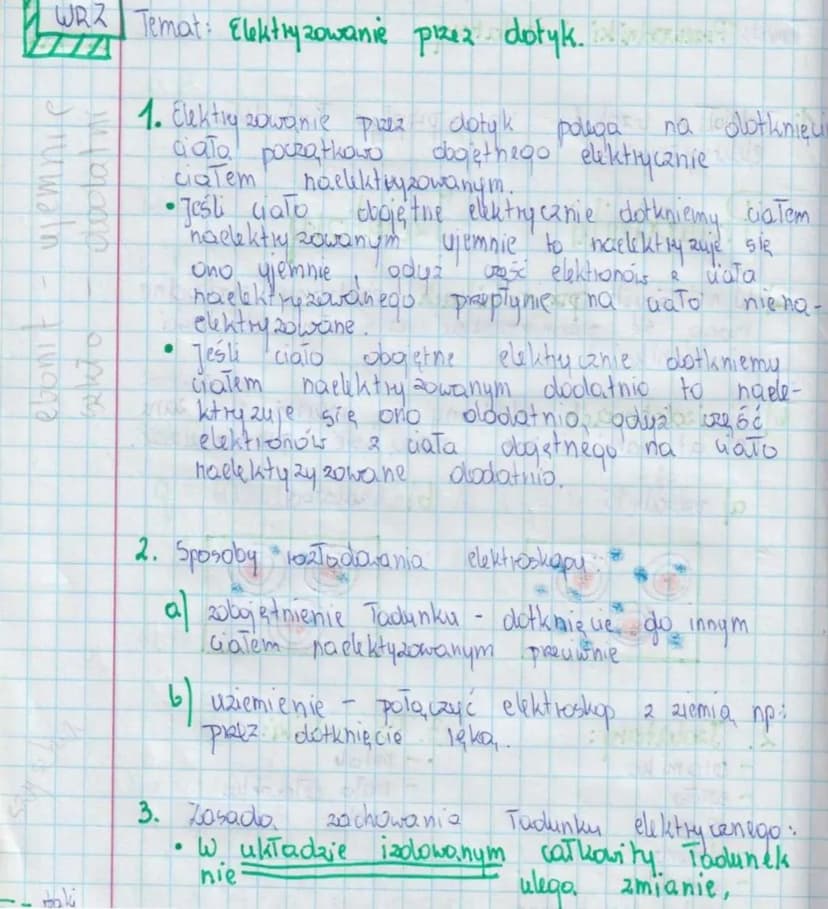 WRZ
Temat: Elektryzowanie przez dotyk.
ebonit - ujemnie
szkło - dodatni
1. Elektryzowanie przez dotyk polega na dotknięciu
ciała początkowo obojętnego elektrycznie
ciałem naelektryzowanym.
• Jeśli ciało obojętne elektrycznie dotkniemy ciałem
naelektryzowanym ujemnie to naelektryzuje się
ono ujemnie, gdyż część elektronów z ciała
naelektryzowanego przepłynie na ciało niena-
elektryzowane.
• Jeśli ciało obojętne elektrycznie dotkniemy
ciałem naelektryzowanym dodatnio to naele-
ktryzuje się ono dodatnio, gdyż część
elektronów z ciała obojętnego na ciało
naelektyzyzowane dodatnio.
2. Sposoby rozładowania elektroskopu:
a) zobojętnienie ładunku - dotknięcie go innym
ciałem naelektyzowanym przeciwnie
b) uziemienie - połączyć elektroskop z ziemią np:
przez dotknięcie ręką.
3. Zasada zachowania ładunku elektrycznego:
• W układzie izolowanym całkowity ładunek
nie ulega zmianie,